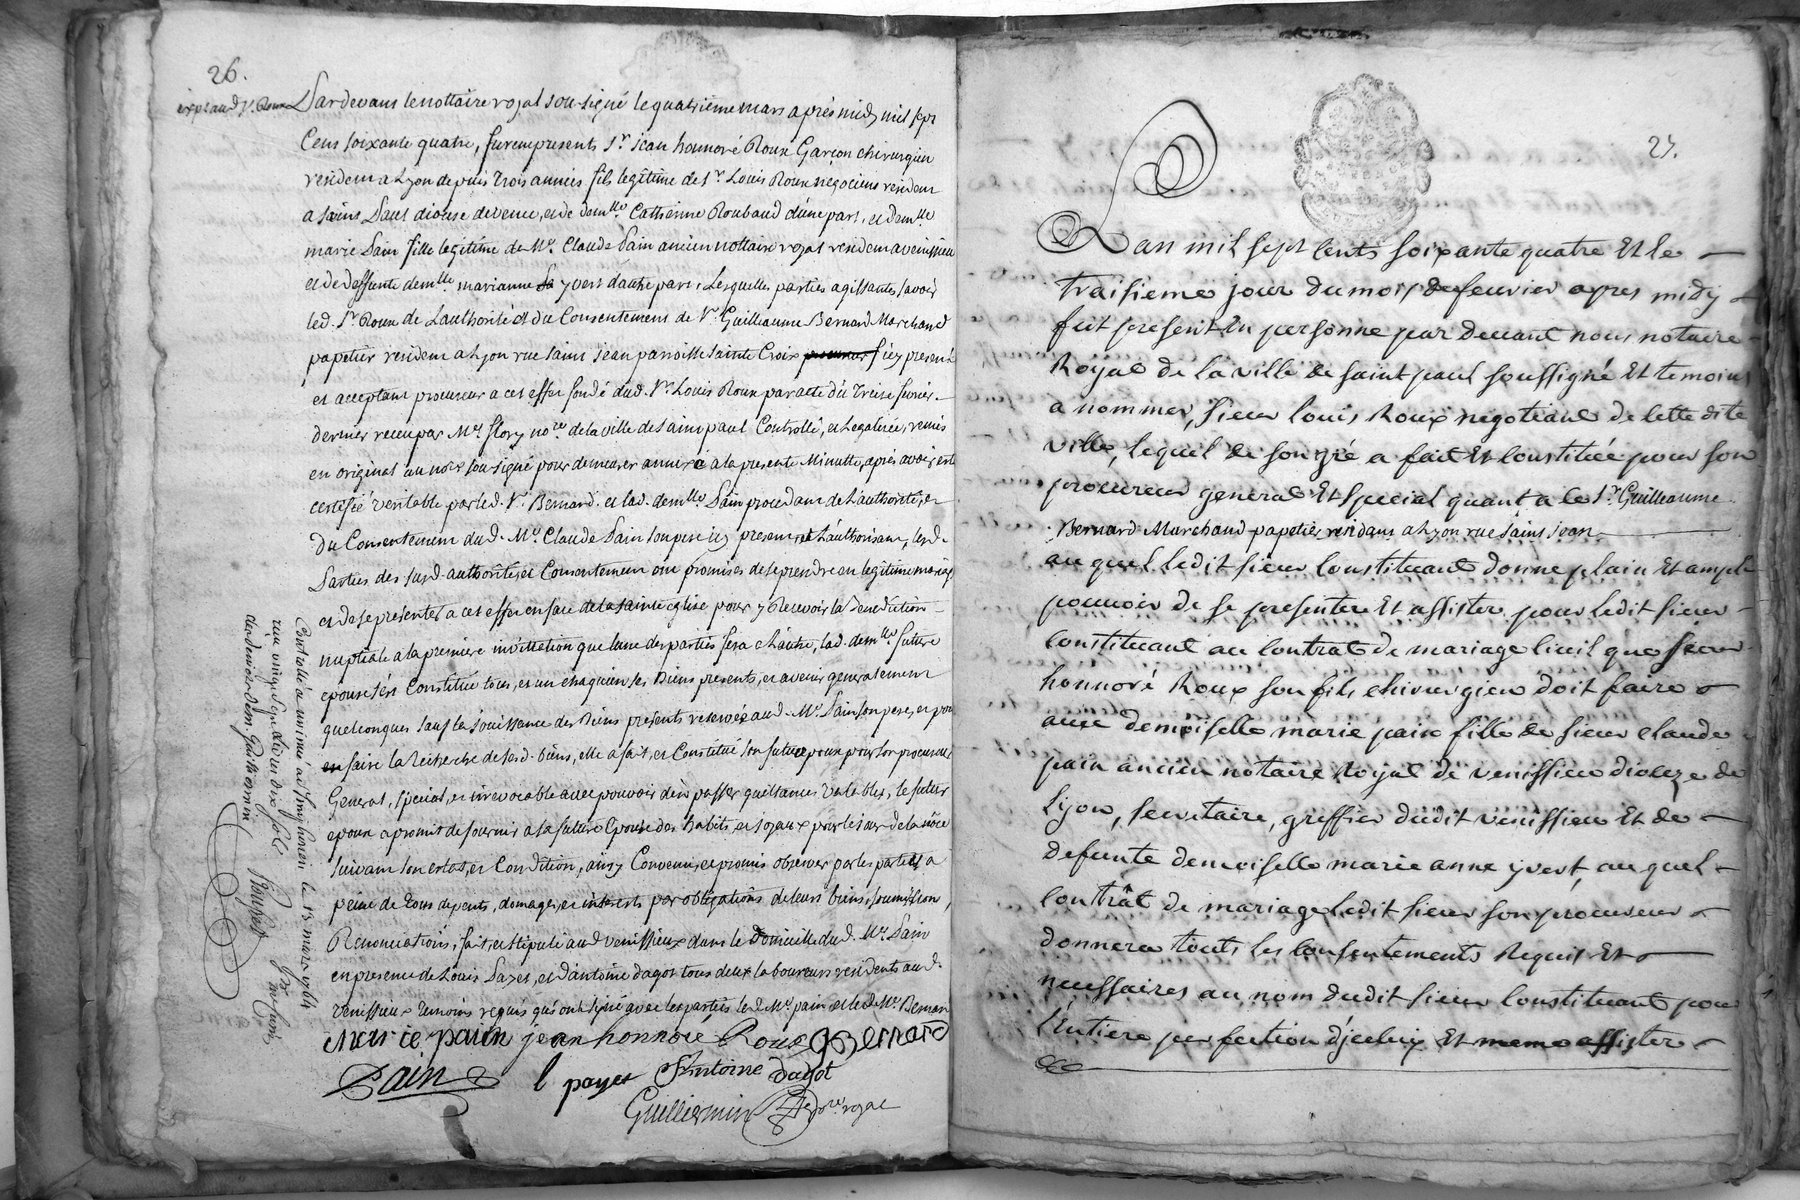 26.
exp: aud Sr. Roux
Pardevant le nottaire royal sousigné le quatrieme mars après midy mil sept
Cens soixante quatre, furent presents Sr. jean honnoré Roux Garçon chirurgien
resident a Lyon depuis trois années fils legitime de Sr. Louis Roux negociens resident
a Saint Paul diocese de vence, et de demlle. Catherine Roubaud d'une part, et demlle
marie Pain fille legitime de Me. Claude Pain ancien nottaire royal resident a venissieu
et de deffunte demlle. marianne yvert dautre part, Lesquelles parties agissantes savoir
led. Sr Roux de Lauthorité et du Consentement de Sr. Guilleaume Bernard Marchand
papetier resident a Lyon rue Saint jean parroisse Sainte Croix icy present
et acceptant procureur a cet effet fondé dud. Sr. Louis Roux par acte du treize fevrier
dernier receu par Me. flory nore. de la ville de Saint paul Controllé, et Legalisée, remis
en original au nore sousigné pour demeurer annexé a la presente Minutte, après avoir esté
certifié veritable par led. Sr. Bernard. et lad. demlle. Pain procedant de Lauthorité, et
Du Consentement dud. Me. Claude Pain son pere icy present et Lauthorisant, lesd.
Parties des susd. authorités et Consentement ont promises de se prendre en legitime mariage
et de se presenter a cet effet en face de la sainte eglise pour y Recevoir la Benediction
nuptiale a la premiere invittation que lune des parties fera a Lautre, lad. demlle. future
epouse s'est Constitué tous, et un chaquien ses Biens presents, et avenir generalement
quelconques sauf la jouissance des Biens presents reservée aud. Me. Pain son pere, et pour
en faire la Recherche desd. biens, elle a fait, et Constitué son futur epoux pour son procureur
General, special, et irrevocable avec pouvoir d'en passer quittances valables, le futur
epoux a promit de fournir a la future Epouse des habits, et joyaux pour le jour de la nôce
suivant son estat, et Condition, ainsy Convenu, et promis observer par les parties a
peine de tous depents, domages, et interests par obligations de leurs biens, soumission,
Renonciations, fait, et stipulé aud venissieux dans le domicille dud. Me. Pain
en presence de Louis Payet, et d'antoine dagot tous deux laboureurs residents aud.
venissieux temoins requis qui ont signé avec les parties led Me. pain et led. Sr. Bernard
marie pain jean honnoré Roux GBernard
Pain l payet Antoine dagot
Guilliermin nore royal
Controllé a a St Simphorien le 13 mars 1764
reçu vingt sept livres dix sols
27.
Lan mil sept cents soixante quatre Et le
traisieme jour du mois de feuvrier apres midy
fut present En personne par Devant nous notaire
Royal de la ville de saint paul soussigné Et temoins
a nommer, sieur louis Roux negotiant de cette dite
ville, lequel de son gré a fait Et Constitué pour son
procureur general Et special quant a ce le Sr. Guilleaume
Bernard Marchand papetier residans a Lyon rue Saint jean
au quel ledit sieur Constituant donne plain Et ample
pouvoir de se presenter Et assister pour ledit sieur
Constituant au Contrat de mariage Civil que sieur
honnoré Roux son fils chirurgien doit faire
avec demoiselle marie pain fille de sieur claude
pain ancien notaire Royal de venissieu dioceze de
Lyon, secretaire, greffier dudit venissieu Et de
defunte demoiselle marie anne yvert, au quel
Contrat de mariage ledit sieur son procureur
donnera touts les Consentements Requis Et
necessaires au nom dudit sieur Constituant pour
l'entiere perfection d'jceluy Et meme assister